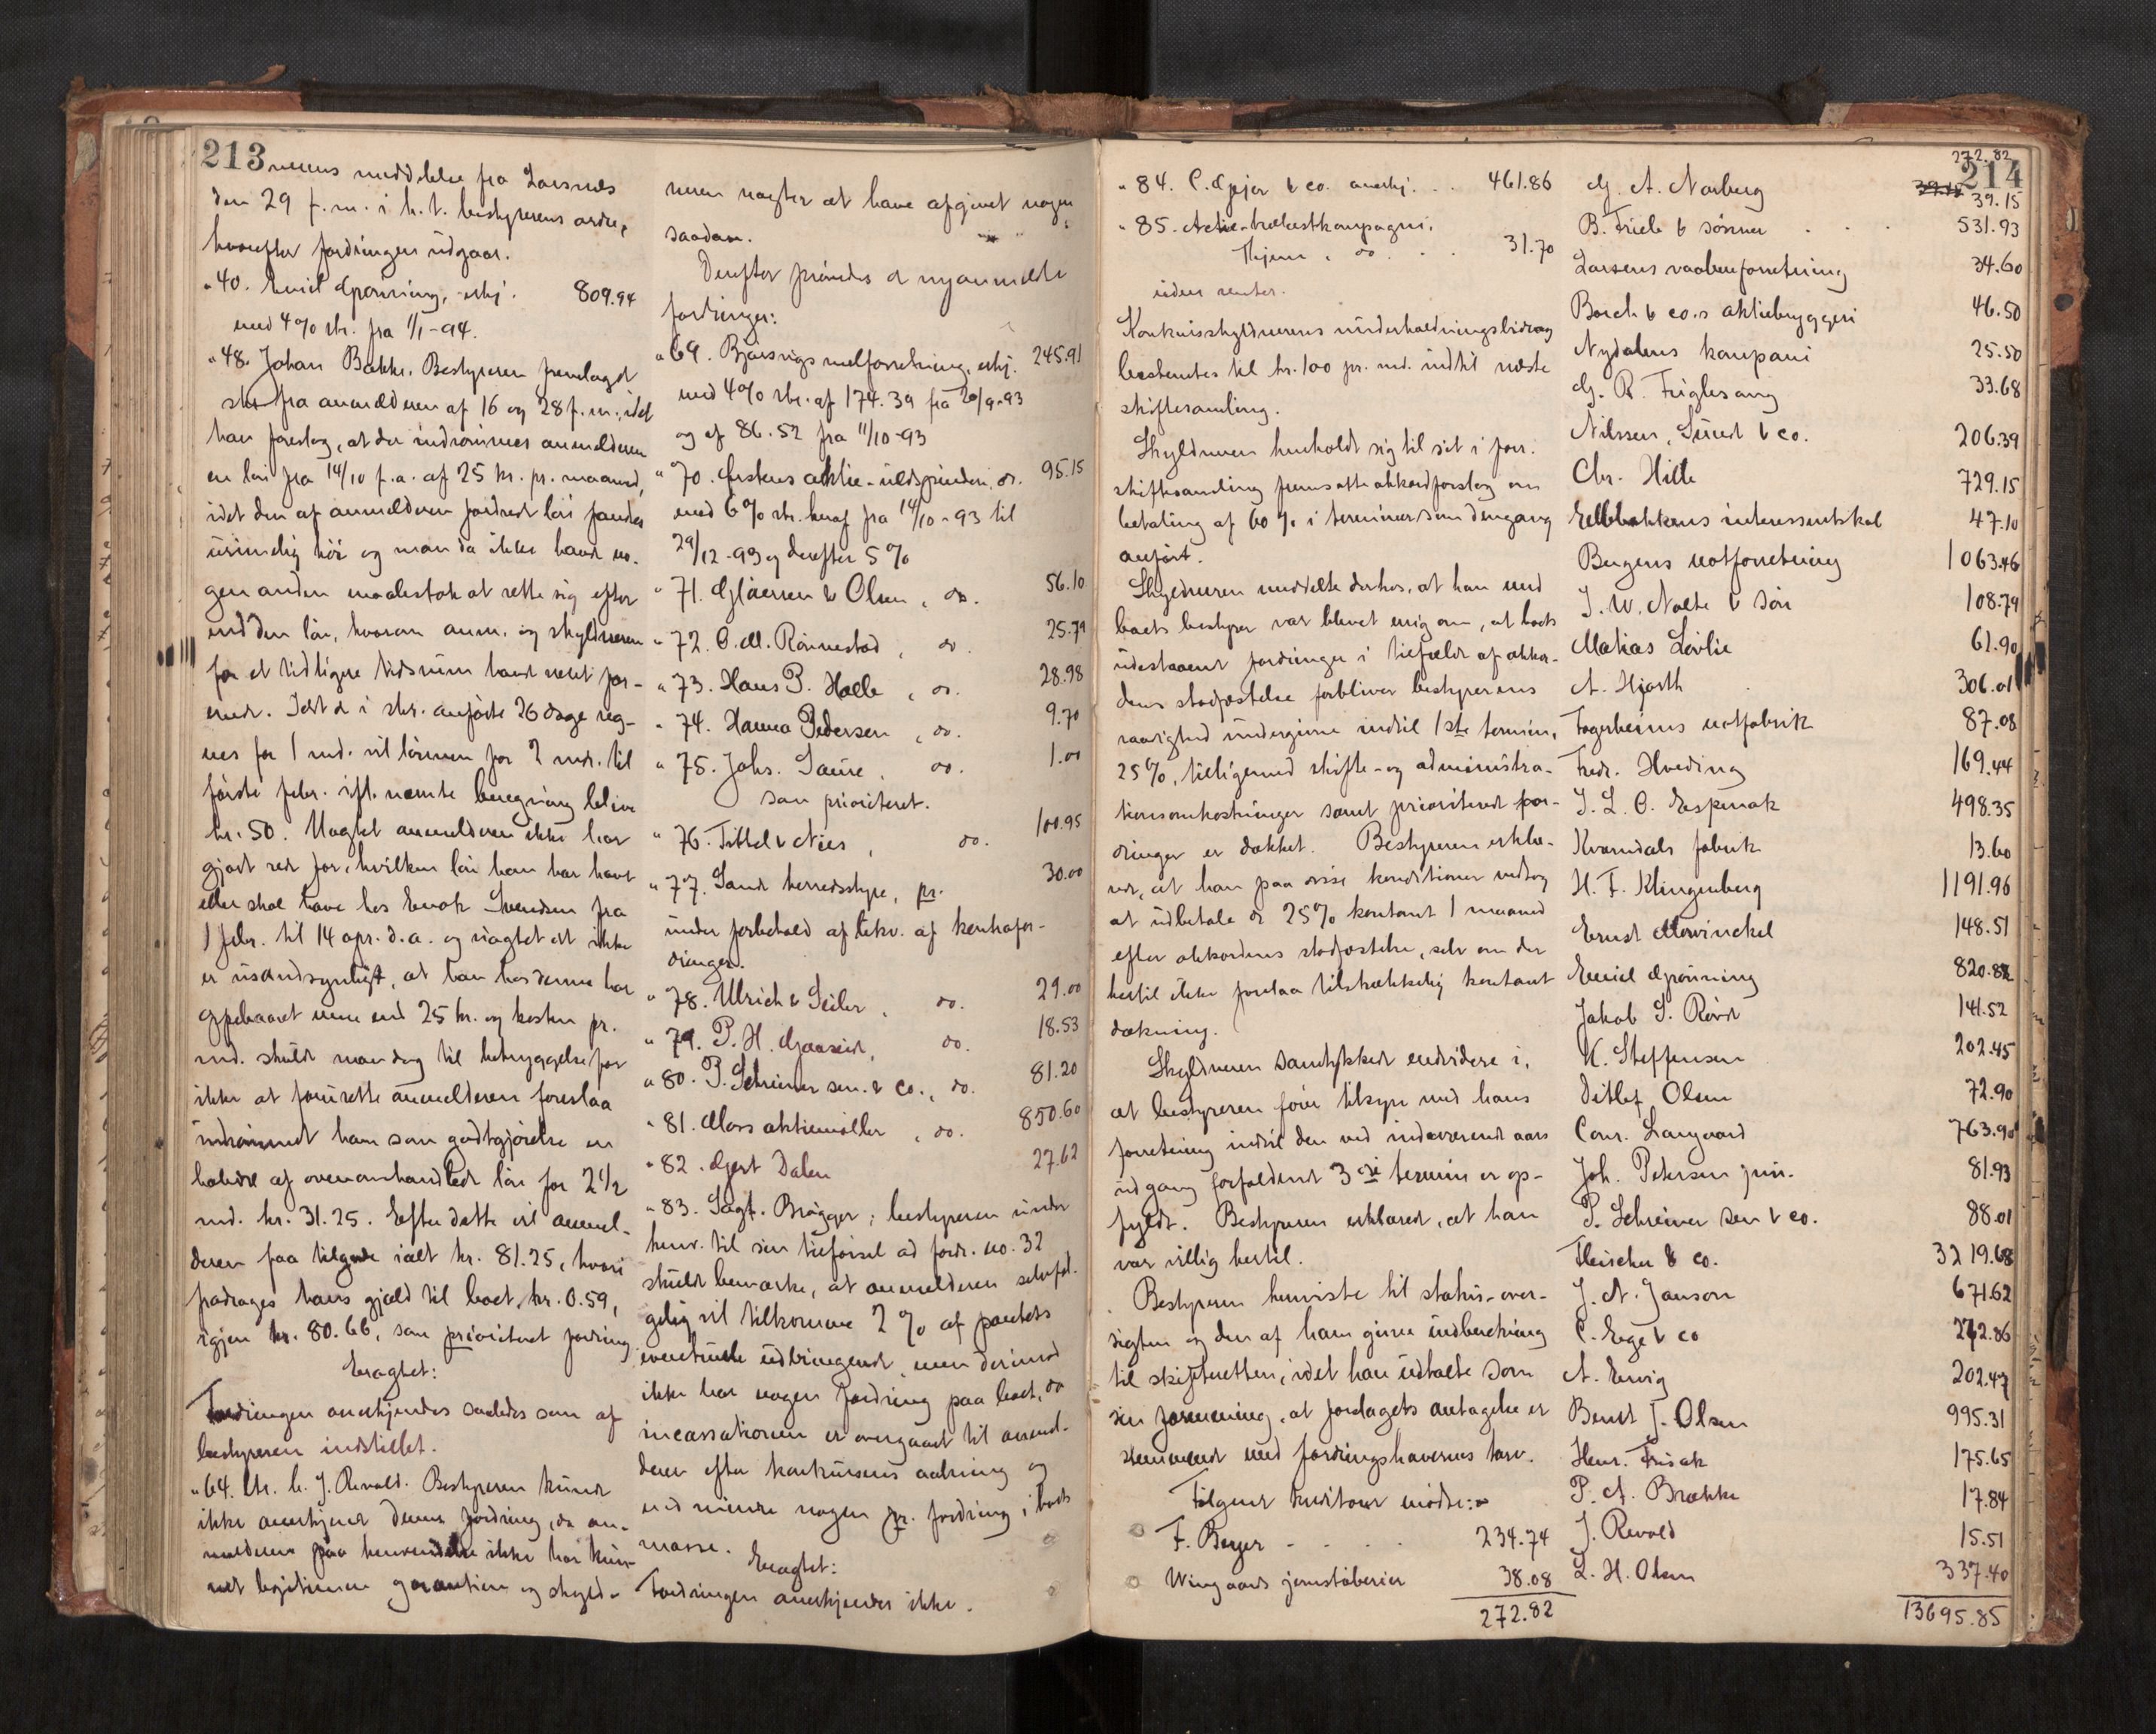 213
nerens meddelelse fra Larsnes
den 29 f.m. i h.t. bestyrerens ordre,
hvorefter fordringen udgaar.
" 40. Emil Grønning, erkj. 809.94
med 4% rtr. fra 1/1-94.
" 48. Johan Bakke. Bestyreren fremlagde
skr. fra anmelderen af 16 og 28 f.m., idet
han foreslog, at der indrømmes anmelderen
en løn fra 14/10 f.a. af 25 kr. pr. maaned,
idet den af anmelderen fordrede løn fandtes
urimelig høi og man da ikke havde no-
gen anden maalestok at rette sig efter
end den løn, hvorom anm. og skyldneren
for et tidligere tidsrum havde været for-
enede. Idet de i skr. anførte 26 dage reg-
nes for 1 md. vil lønnen for 2 mdr. til
første febr. ifl. nævnte beregning blive
kr. 50. Uagtet anmelderen ikke har
gjort rede for, hvilken løn han har havt
eller skal have hos Enok Svendsen fra
1 febr. til 14 apr. d.a. og uagtet det ikke
er usandsynligt, at han hos denne har
oppebaaret mere end 25 kr. og kosten pr.
md. skulde man dog til betryggelse for
ikke at forurette anmelderen foreslaa
indrømmet ham som godtgjørelse en
halvdel af ovenomhandlede løn for 2 1/2
md. kr. 31.25. Efter dette vil anmel-
deren faa tilgode ialt kr. 81.25, hvori
fradrages hans gjæld til boet, kr. 0.59,
igjen kr. 80.66, som prioriteret fordring.
Eragtet:
Fordringen anerkjendes saaledes som af
bestyreren indstillet.
" 64. J. Revold. Bestyreren kunde
ikke anerkjende denne fordring, da an-
melderen paa henvendelse ikke har kun-
net legitimere garantien og skyld-
neren nægter at have afgivet nogen
saadan.
Derefter prøvedes de nyanmeldte
fordringer:
" 69. Bjørsvigs melforretning, erkj. 245.91
med 4% rtr. af 174.39 fra 20/9-93
og af 86.52 fra 11/10-93
" 70. Aktie-uldspinderi, do. 95.15
med 6% rtr. heraf fra 14/10-93 til
29/12-93 og derefter 5%
" 71. Gjærsen & Olsen, do. 56.10
" 72. O. M. Rønnestad, do. 25.79
" 73. Hans P. Holle, do. 28.98
" 74. Hanna Pedersen, do. 9.70
" 75. Johs. Saure, do. 1.00
som prioriteret.
" 76. Tittel & Nies, do. 100.95
" 77. Sande herredsstyre, pr. 30.00
under forbehold af likv. af kontrafor-
dringer.
" 78. Ulrich & Seiler, do. 29.00
" 79. P. H. Gjaaseid, do. 18.53
" 80. P. Schreiner sen. & co., do. 81.20
" 81. Moss aktiemøller, do. 850.60
" 82. Gert Dalen 27.62
" 83. Sagf. Brøgger; bestyreren under
henv. til sin tilførsel ad fordr. no. 32
skulde bemærke, at anmelderen selvføl-
gelig vil tilkomme 2% af pantets
eventuelle udbringende, men derimod
ikke har nogen fordring paa boet, da
incassationen er overgaaet til anmel-
deren efter konkursens aabning og
end mindre nogen pr. fordring i boets
masse.
Eragtet:
Fordringen anerkjendes ikke.
214
" 84. C. Geijer & co. anerkj. . . 461.86
" 85. Actie-trælastkompagni,
Thjem, do. . . 31.70
uden renter.
Konkursskyldnerens underholdningsbidrag
bestemtes til kr. 100 pr. md. indtil næste
skiftesamling.
Skyldneren henholdt sig til sit i forr.
skiftesamling fremsatte akkordforslag om
betaling af 60% i terminer som dengang
anført.
Skyldneren meddelte derhos, at han med
boets bestyrer var blevet enig om, at boets
udestaaende fordringer i tilfælde af akkor-
dens stadfæstelse forbliver bestyrerens
raadighed undergivne indtil 1ste termin,
25%, tilligemed skifte- og administra-
tionsomkostninger samt prioriterede for-
dringer er dækket. Bestyreren erklæ-
rede, at han paa disse konditioner vedtog
at udbetale de 25% kontant 1 maaned
efter akkordens stadfæstelse, selv om der
hertil ikke forelaa tilstrækkelig kontant
dækning.
Skyldneren samtykkede endvidere i,
at bestyreren fører tilsyn med hans
forretning indtil den ved indeværende aars
udgang forfaldende 3die termin er op-
fyldt. Bestyreren erklærede, at han
var villig hertil.
Bestyreren henviste til status-over-
sigten og den af ham givne indberetning
til skifteretten, idet han udtalte som
sin formening, at forslagets antagelse er
stemmende med fordringshavernes tarv.
Følgende kreditorer mødte:
F. Beyer - - - - 234.74
Wingaards jernstøberier 38.08
272.82
272.82
G. A. Norberg 39.15 39.15
B. Friele & sønner . . . 531.93
Larsens vaabenforretning 34.60
Borch & co.s aktiebryggeri 46.50
Nydalens kompani 25.50
G. R. Fuglesang 33.68
Nilssen, Sund & co. 206.39
Chr. Hille 729.15
Ellebakkens interessentskab 47.10
Bergens notforretning 1063.46
J. W. Nolte & søn 108.79
Matias Løvlie 61.90
A. Hjorth 306.01
Fagerheims notfabrik 87.08
Fredr. Hveding 169.44
J. L. C. Espenak 498.35
Kværndals fabrik 13.60
H. F. Klingenberg 1191.96
Ernst Mowinckel 148.51
Emil Grønning 820.82
Jakob S. Røvde 141.52
K. Steffensen 202.45
Ditlef Olsen 72.90
Conr. Langaard 763.90
Joh. Petersen jun. 81.93
P. Schreiner sen & co. 88.01
Fleischer & co. 3219.68
J. N. Janson 671.62
C. Ege & co 242.86
A. Ervig 202.47
Berndt J. Olsen 995.31
Henr. Frisak 175.65
P. A. Brække 17.84
J. Revold 15.51
L. H. Olsen 337.40
13695.85